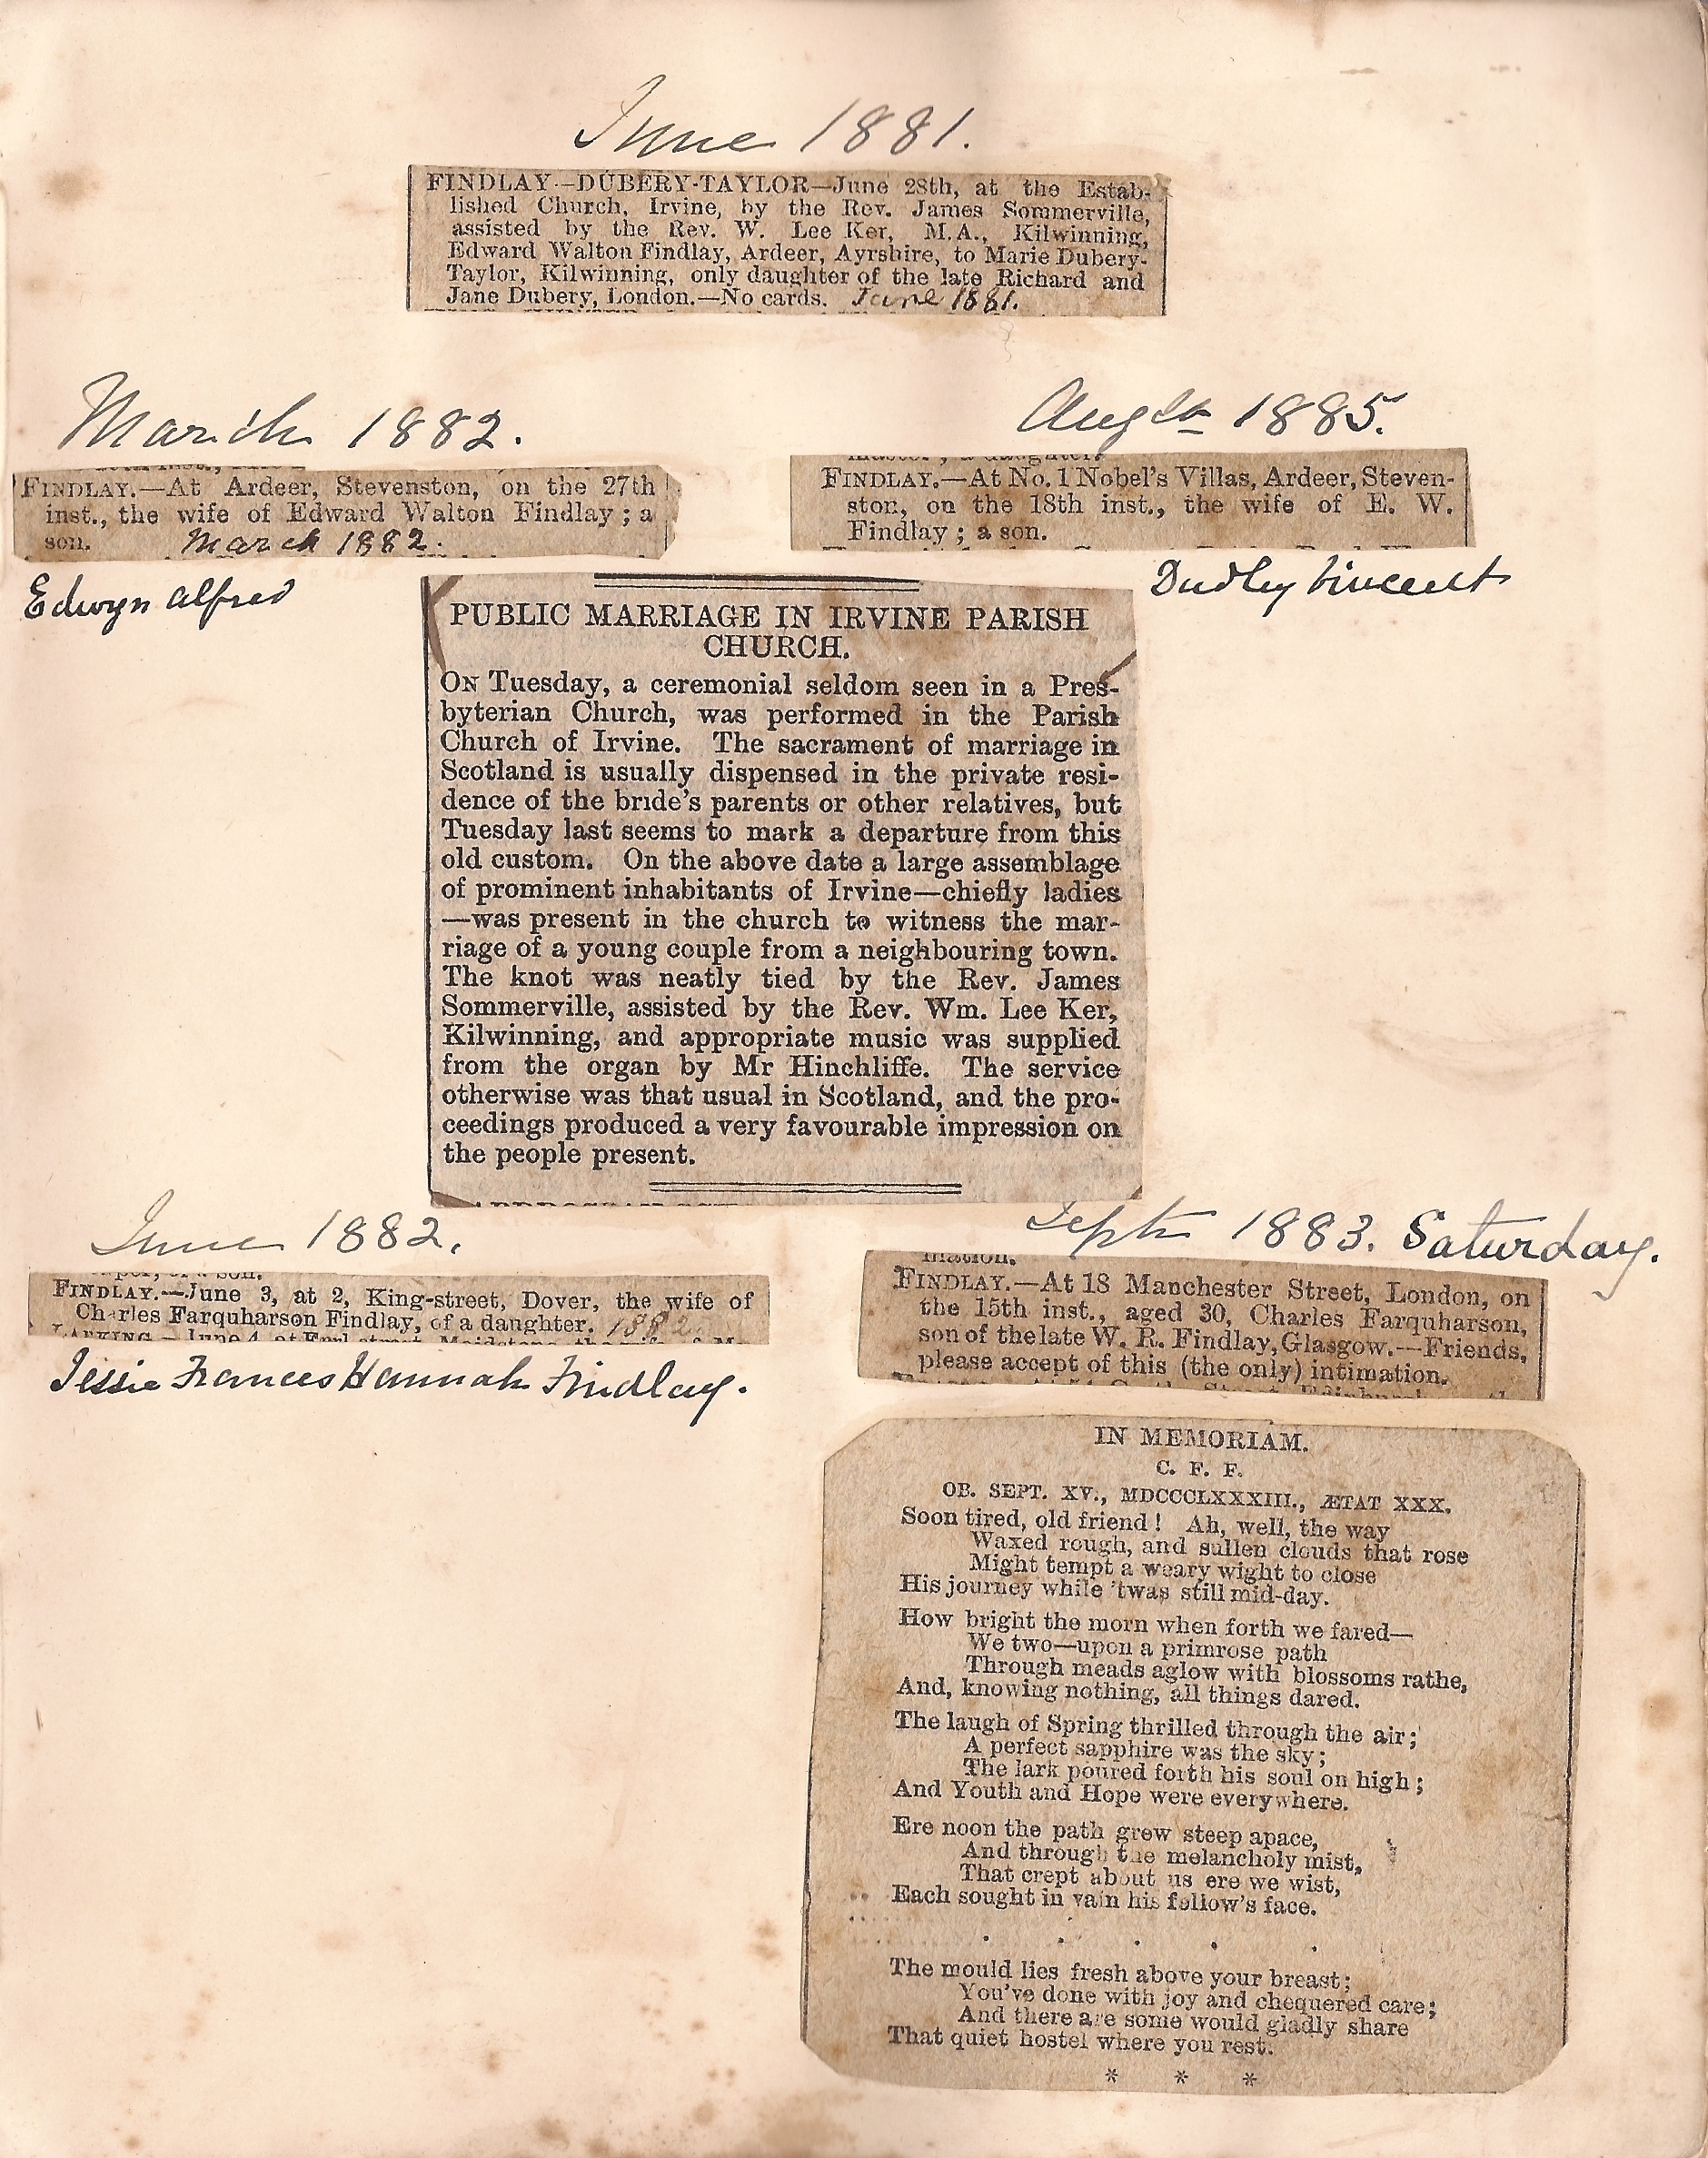 June 1881.
FINDLAY—DUBERY-TAYLOR—June 28th, at the Estab-
lished Church, Irvine, by the Rev. James Sommerville,
assisted by the Rev. W. Lee Ker, M.A., Kilwinning,
Edward Walton Findlay, Ardeer, Ayrshire, to Marie Dubery-
Taylor, Kilwinning, only daughter of the late Richard and
Jane Dubery, London.—No cards. June 1881.
March 1882.
FINDLAY.—At Ardeer, Stevenston, on the 27th
inst., the wife of Edward Walton Findlay; a
son. March 1882.
Edwyn Alfred
Augst 1885.
FINDLAY.—At No. 1 Nobel's Villas, Ardeer, Steven-
ston, on the 18th inst., the wife of E. W.
Findlay; a son.
Dudley Vincent
PUBLIC MARRIAGE IN IRVINE PARISH
CHURCH.
ON Tuesday, a ceremonial seldom seen in a Pres-
byterian Church, was performed in the Parish
Church of Irvine. The sacrament of marriage in
Scotland is usually dispensed in the private resi-
dence of the bride's parents or other relatives, but
Tuesday last seems to mark a departure from this
old custom. On the above date a large assemblage
of prominent inhabitants of Irvine—chiefly ladies
—was present in the church to witness the mar-
riage of a young couple from a neighbouring town.
The knot was neatly tied by the Rev. James
Sommerville, assisted by the Rev. Wm. Lee Ker,
Kilwinning, and appropriate music was supplied
from the organ by Mr Hinchliffe. The service
otherwise was that usual in Scotland, and the pro-
ceedings produced a very favourable impression on
the people present.
June 1882.
FINDLAY.—June 3, at 2, King-street, Dover, the wife of
Charles Farquharson Findlay, of a daughter. 1882.
Jessie Frances Hannah Findlay.
Septr 1883. Saturday.
FINDLAY.—At 18 Manchester Street, London, on
the 15th inst., aged 30, Charles Farquharson,
son of the late W. R. Findlay, Glasgow.—Friends,
please accept of this (the only) intimation.
IN MEMORIAM.
C. F. F.
OB. SEPT. XV., MDCCCLXXXIII., ÆTAT XXX.
Soon tired, old friend! Ah, well, the way
Waxed rough, and sullen clouds that rose
Might tempt a weary wight to close
His journey while 'twas still mid-day.
How bright the morn when forth we fared—
We two—upon a primrose path
Through meads aglow with blossoms rathe,
And, knowing nothing, all things dared.
The laugh of Spring thrilled through the air;
A perfect sapphire was the sky;
The lark poured forth his soul on high;
And Youth and Hope were everywhere.
Ere noon the path grew steep apace,
And through the melancholy mist,
That crept about us ere we wist,
Each sought in vain his fellow's face.
. . . . .
The mould lies fresh above your breast;
You've done with joy and chequered care;
And there are some would gladly share
That quiet hostel where you rest.
* * *